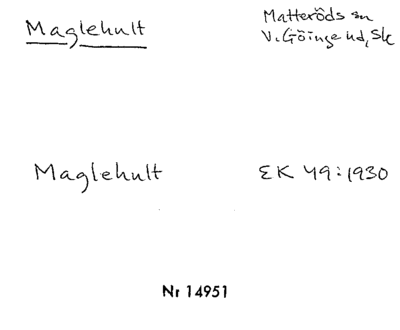 Maglehult
Matteröds sn
V. Göinge hd, Sk
Maglehult
EK 49:1930
Nr 14951